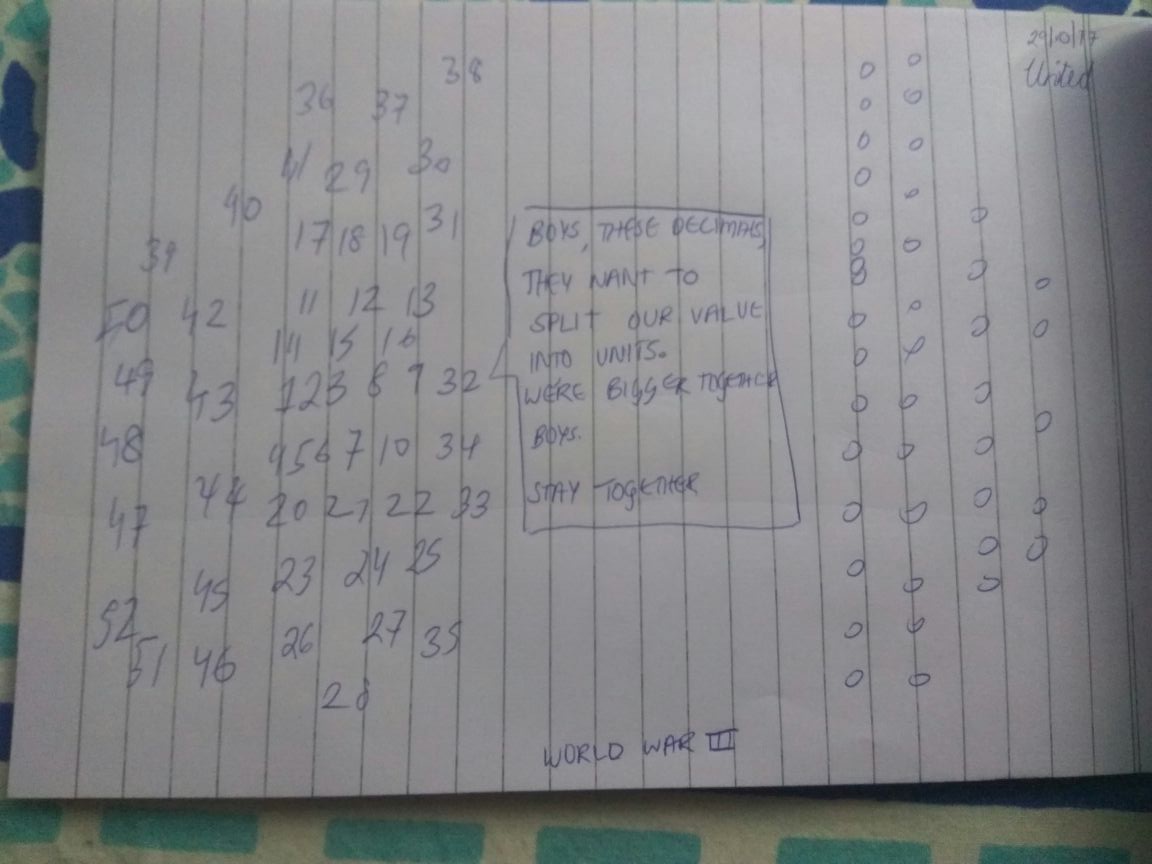 29/10/17
United
38
36 37
41 29 30
40
17 18 19 31
39
50 42 11 12 13
14 15 16
49 43 1 2 3 8 9 32
48 4 5 6 7 10 34
47 44 20 21 22 33
45 23 24 25
52 26 27 35
51 46
28
BOYS, THESE DECIMALS,
THEY WANT TO
SPLIT OUR VALUE
INTO UNITS.
WERE BIGGER TOGETHER
BOYS.
STAY TOGETHER
0 0
0 0
0 0
0 0
0 0
0 0
0 0
0 0
0 0 0
0 0 0
0 0 0
0 0 0
0 0 0
0 0 0
0 0
0 0
WORLD WAR III